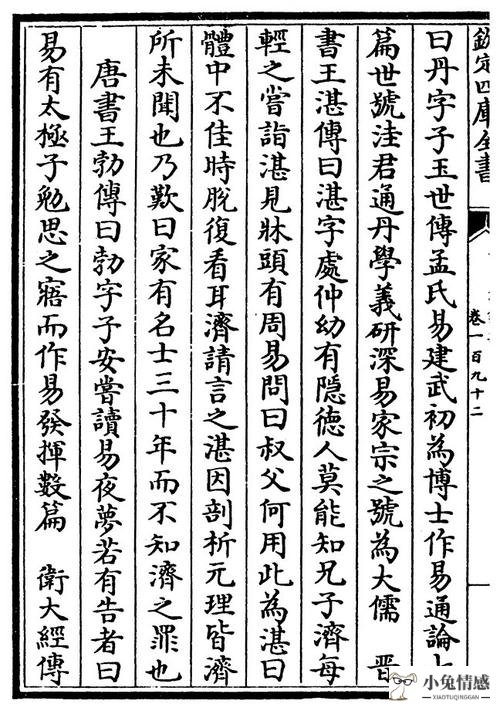 欽定四庫全書
卷一百九十二
曰丹字子玉世傳孟氏易建武初為博士作易通論七
篇世號洼君通丹學義研深易家宗之號為大儒 晉
書王湛傳曰湛字處仲幼有隱德人莫能知兄子濟每
輕之嘗詣湛見牀頭有周易問曰叔父何用此為湛曰
體中不佳時脫復看耳濟請言之湛因剖析元理皆濟
所未聞也乃歎曰家有名士三十年而不知濟之罪也
唐書王勃傳曰勃字子安嘗讀易夜夢若有告者曰
易有太極子勉思之寤而作易發揮數篇 衛大經傳
小兔情感
XIAOTUQINGGAN